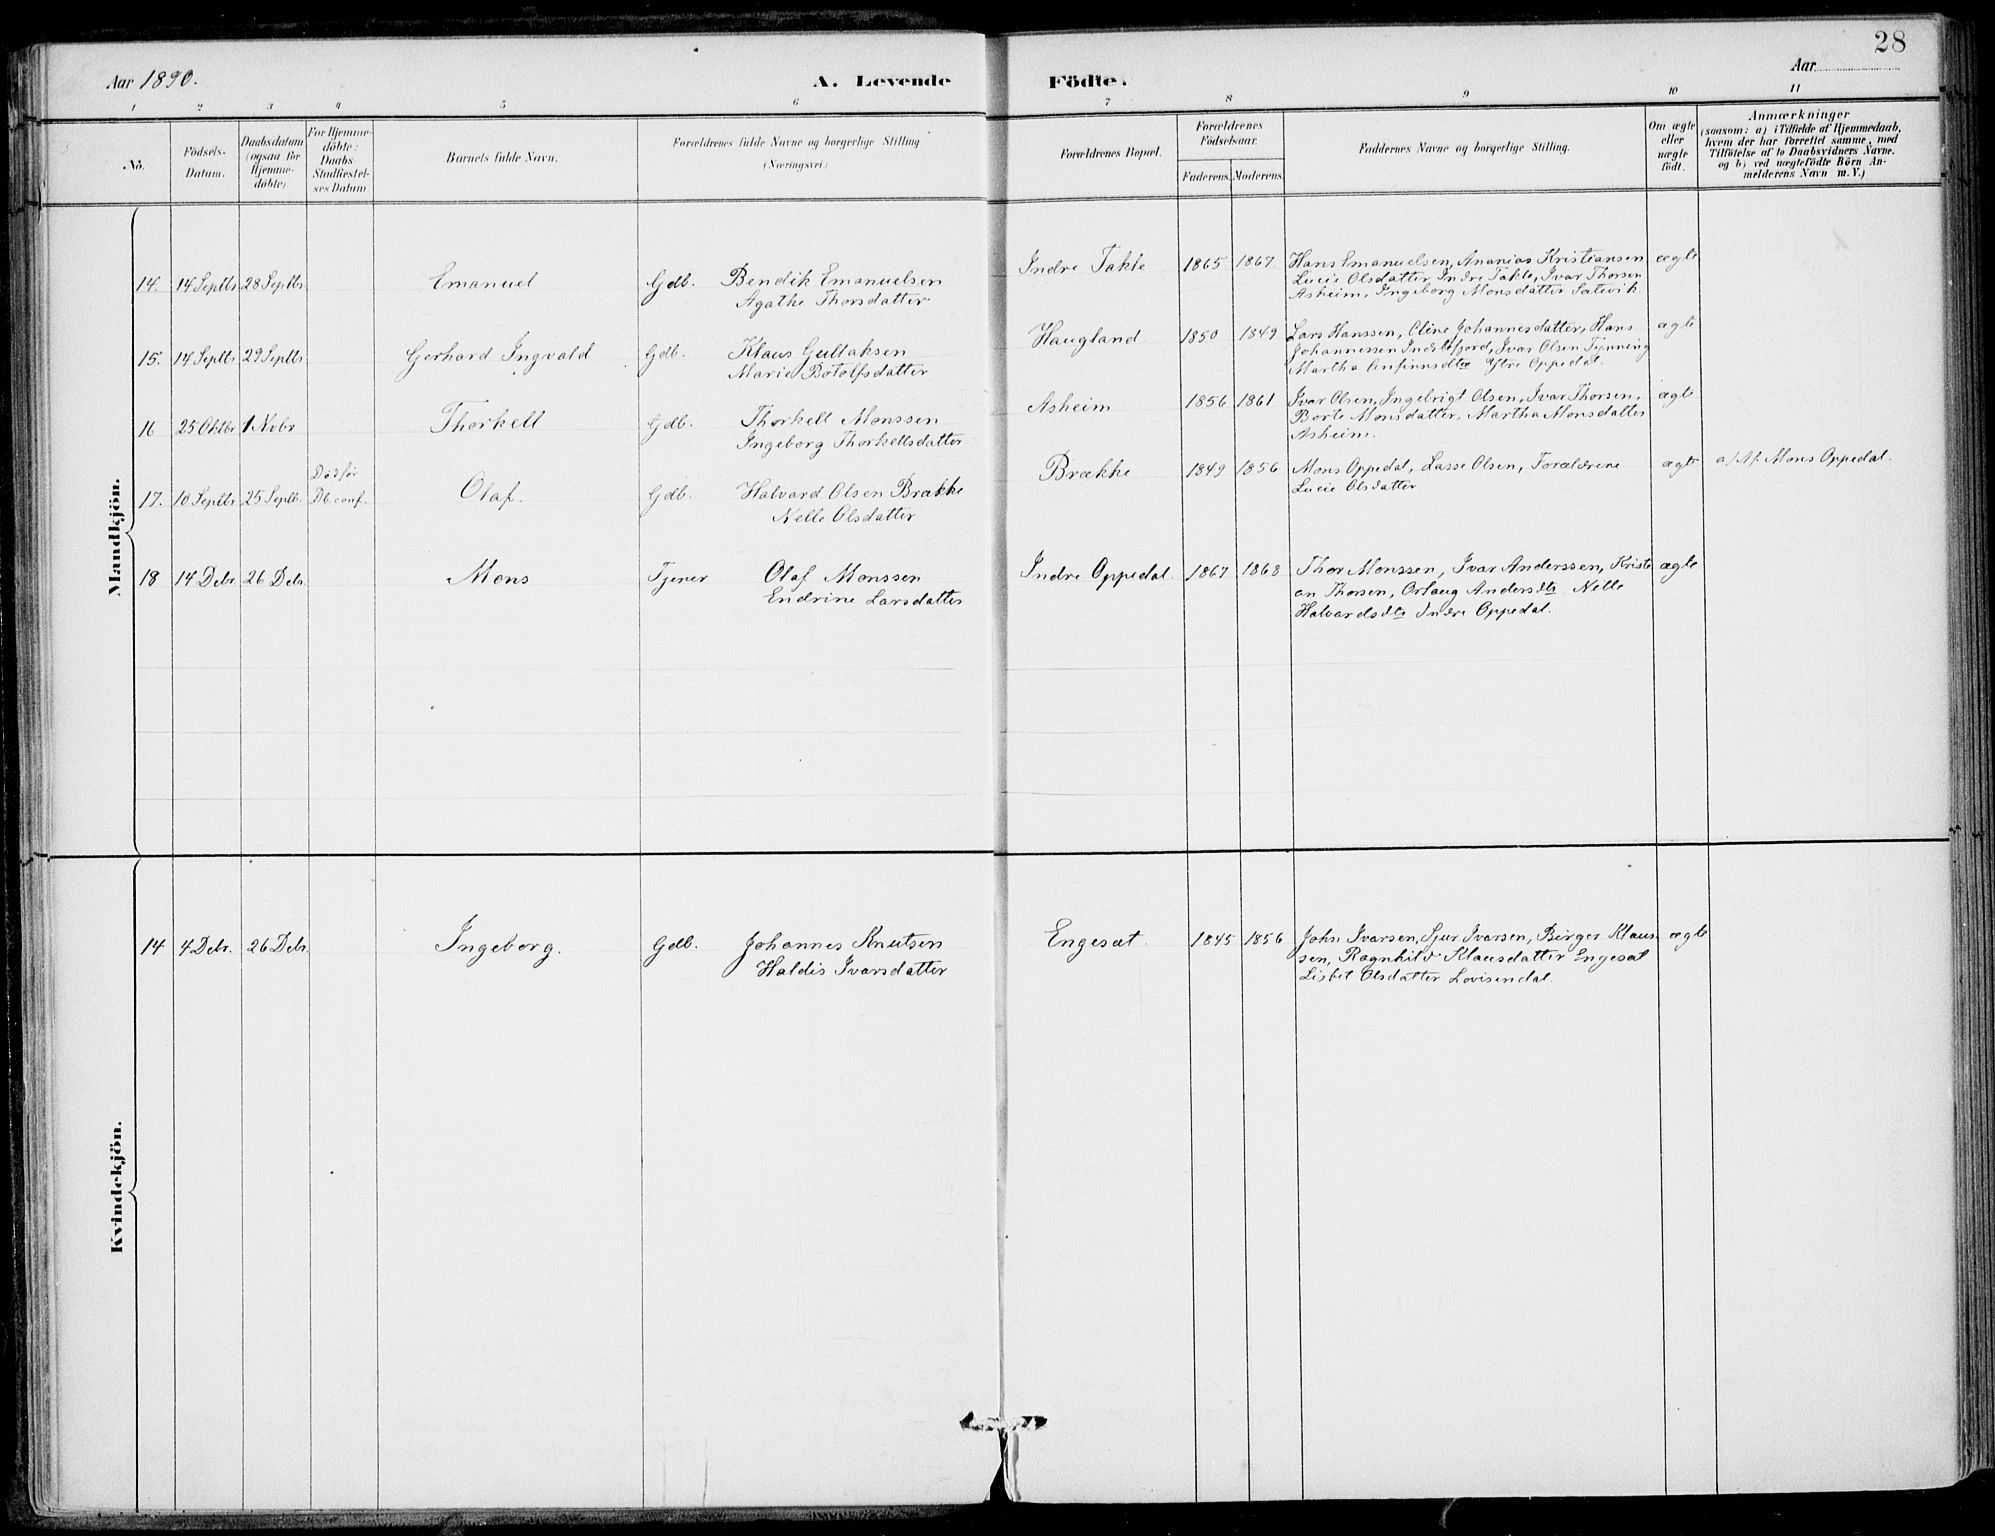 28
Aar 1890.
A. Levende Födte.
Aar
1 2 3 4 5 6 7 8 9 10 11
No.
Födsels-
Datum.
Daabsdatum
(ogsaa for
Hjemme-
döbte).
For Hjemme-
döbte:
Daabs
Stadfæstel-
ses Datum
Barnets fulde Navn.
Forældrenes fulde Navne og borgerlige Stilling
(Næringsvei.)
Forældrenes Bopæl.
Forældrenes
Födselsaar.
Faderens. Moderens.
Faddernes Navne og borgerlige Stilling.
Om ægte
eller
uægte
födt.
Anmærkninger
(saasom: a) i Tilfælde af Hjemmedaab,
hvem der har forrettet samme, med
Tilföielse af to Daabsvidners Navne.
og b) ved uægtefödte Börn An-
melderens Navn m. V.)
Mandkjön.
14. 14 Septbr 28 Septbr Emanuel Gdb. Bendik Emanuelsen
Agathe Thorsdatter
Indre Takle 1865 1867. Hans Emanuelsen, Ananias Kristiansen ægte
Lucie Olsdatter, Indre Takle, Ivar Thorsen
Asheim, Ingeborg Monsdatter Satevik.
15. 14 Septbr 29 Septbr Gerhard Ingvald Gdb. Klaus Gullaksen
Marie Botolfsdatter
Haugland 1850 1849 Lars Hanssen, Oline Johannesdatter, Hans ægte
Johannessen Indrefjord, Ivar Olsen Tynning
Martha Anfinnsdtr Ytre Oppedal.
16 25 Oktbr 1 Nvbr Thorkell Gdb. Thorkell Monssen
Ingeborg Thorkellsdatter
Asheim 1856 1861 Ivar Olsen, Ingebrigt Olsen, Ivar Thorsen, ægte
Borte Monsdatter, Martha Monsdatter
Asheim.
17. 10 Septbr 25 Septb. Död för
Db. conf. Olaf. Gdb. Halvard Olsen Brække
Nelle Olsdatter
Brække 1849 1856 Mons Oppedal, Lasse Olsen, Forældrene ægte a/ Af Mons Oppedal.
Lucie Olsdatter
18 14 Debr. 26 Debr. Mons Tjener Olaf Monssen
Endrine Larsdatter
Indre Oppedal. 1867 1868 Thor Monssen, Ivar Anderssen, Kristi ægte
an Thorsen, Orlaug Andersdtr Nelle
Halvardsdtr Indre Oppedal.
Kvindekjön.
14 4 Debr. 26 Debr. Ingeborg. Gdb. Johannes Knutsen
Haldis Ivarsdatter
Engesæt. 1845 1856 John Ivarsen, Sjur Ivarsen, Birger Klaus ægte
sen, Ragnhild Klausdatter Engesæt
Lisbet Olsdatter Lovisendal.